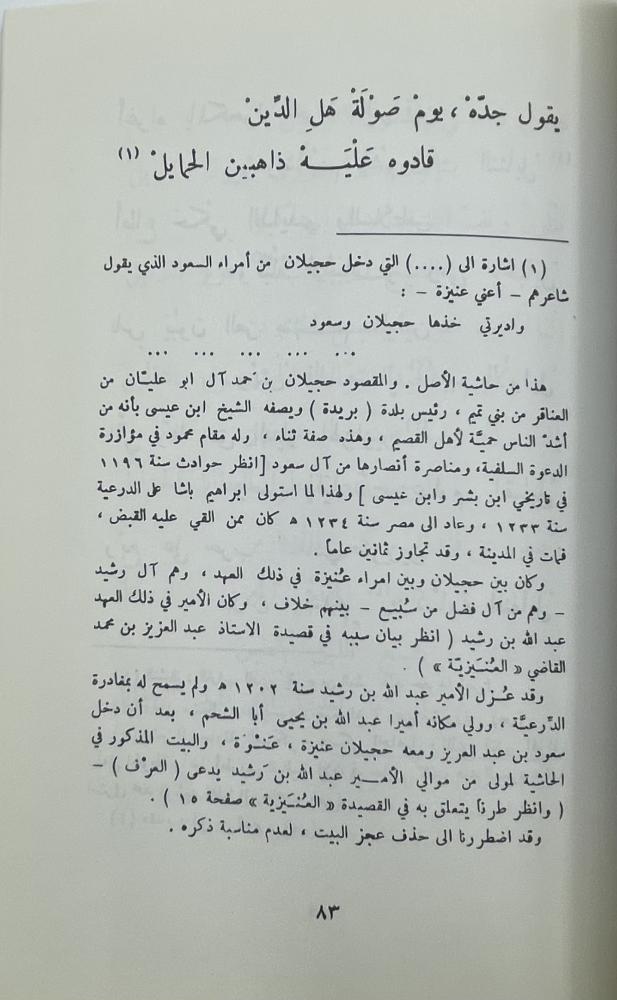 يقول جدّهْ ، يومْ صَوْلَةْ هَلِ الدِّينْ
قادوه عَلْيَـــهْ ذاهبين الحمايلْ (١)
(١) اشارة الى (....) التي دخل حجيلان من أمراء السعود الذي يقول
شاعرهم – أعني عنيزة – :
واديرتي خذها حجيلان وسعود
... ... ... ... ...
هذا من حاشية الأصل . والمقصود حجيلان بن حمد آل ابو عليّان من
العناقر من بني تميم ، رئيس بلدة ( بريدة ) ويصفه الشيخ ابن عيسى بأنه من
أشدّ الناس حميَّة لأهل القصيم ، وهذه صفة ثناء ، وله مقام محمود في مؤازرة
الدعوة السلفية، ومناصرة أنصارها من آل سعود [انظر حوادث سنة ١١٩٦
في تاريخي ابن بشر وابن عيسى ] ولهذا لما استولى ابراهيم باشا على الدرعية
سنة ١٢٣٣ ، وعاد الى مصر سنة ١٢٣٤ ه كان ممن القي عليه القبض ،
فمات في المدينة ، وقد تجاوز ثمانين عاماً .
وكان بين حجيلان وبين امراء عُنيزة في ذلك العهد ، وهم آل رشيد
– وهم من آل فضل من سُبيع – بينهم خلاف ، وكان الأمير في ذلك العهد
عبد الله بن رشيد ( انظر بيان سببه في قصيدة الاستاذ عبد العزيز بن محمد
القاضي « العُنَيزيّة » ) .
وقد عُــزل الأمير عبد الله بن رشيد سنة ١٢٠٢ ه ولم يسمح له بمغادرة
الدِّرعيَّة ، وولي مكانه أميرا عبد الله بن يحيى أبا الشحم ، بعد أن دخل
سعود بن عبد العزيز ومعه حجيلان عنيزة ، عَنْوَة ، والبيت المذكور في
الحاشية لمولى من موالي الأمــير عبد الله بن رَشيد يدعى ( العرْف ) –
( وانظر طرفاً يتعلق به في القصيدة « العُنَيزية » صفحة ١٥ ) .
وقد اضطررنا الى حذف عجز البيت ، لعدم مناسبة ذكره .
٨٣